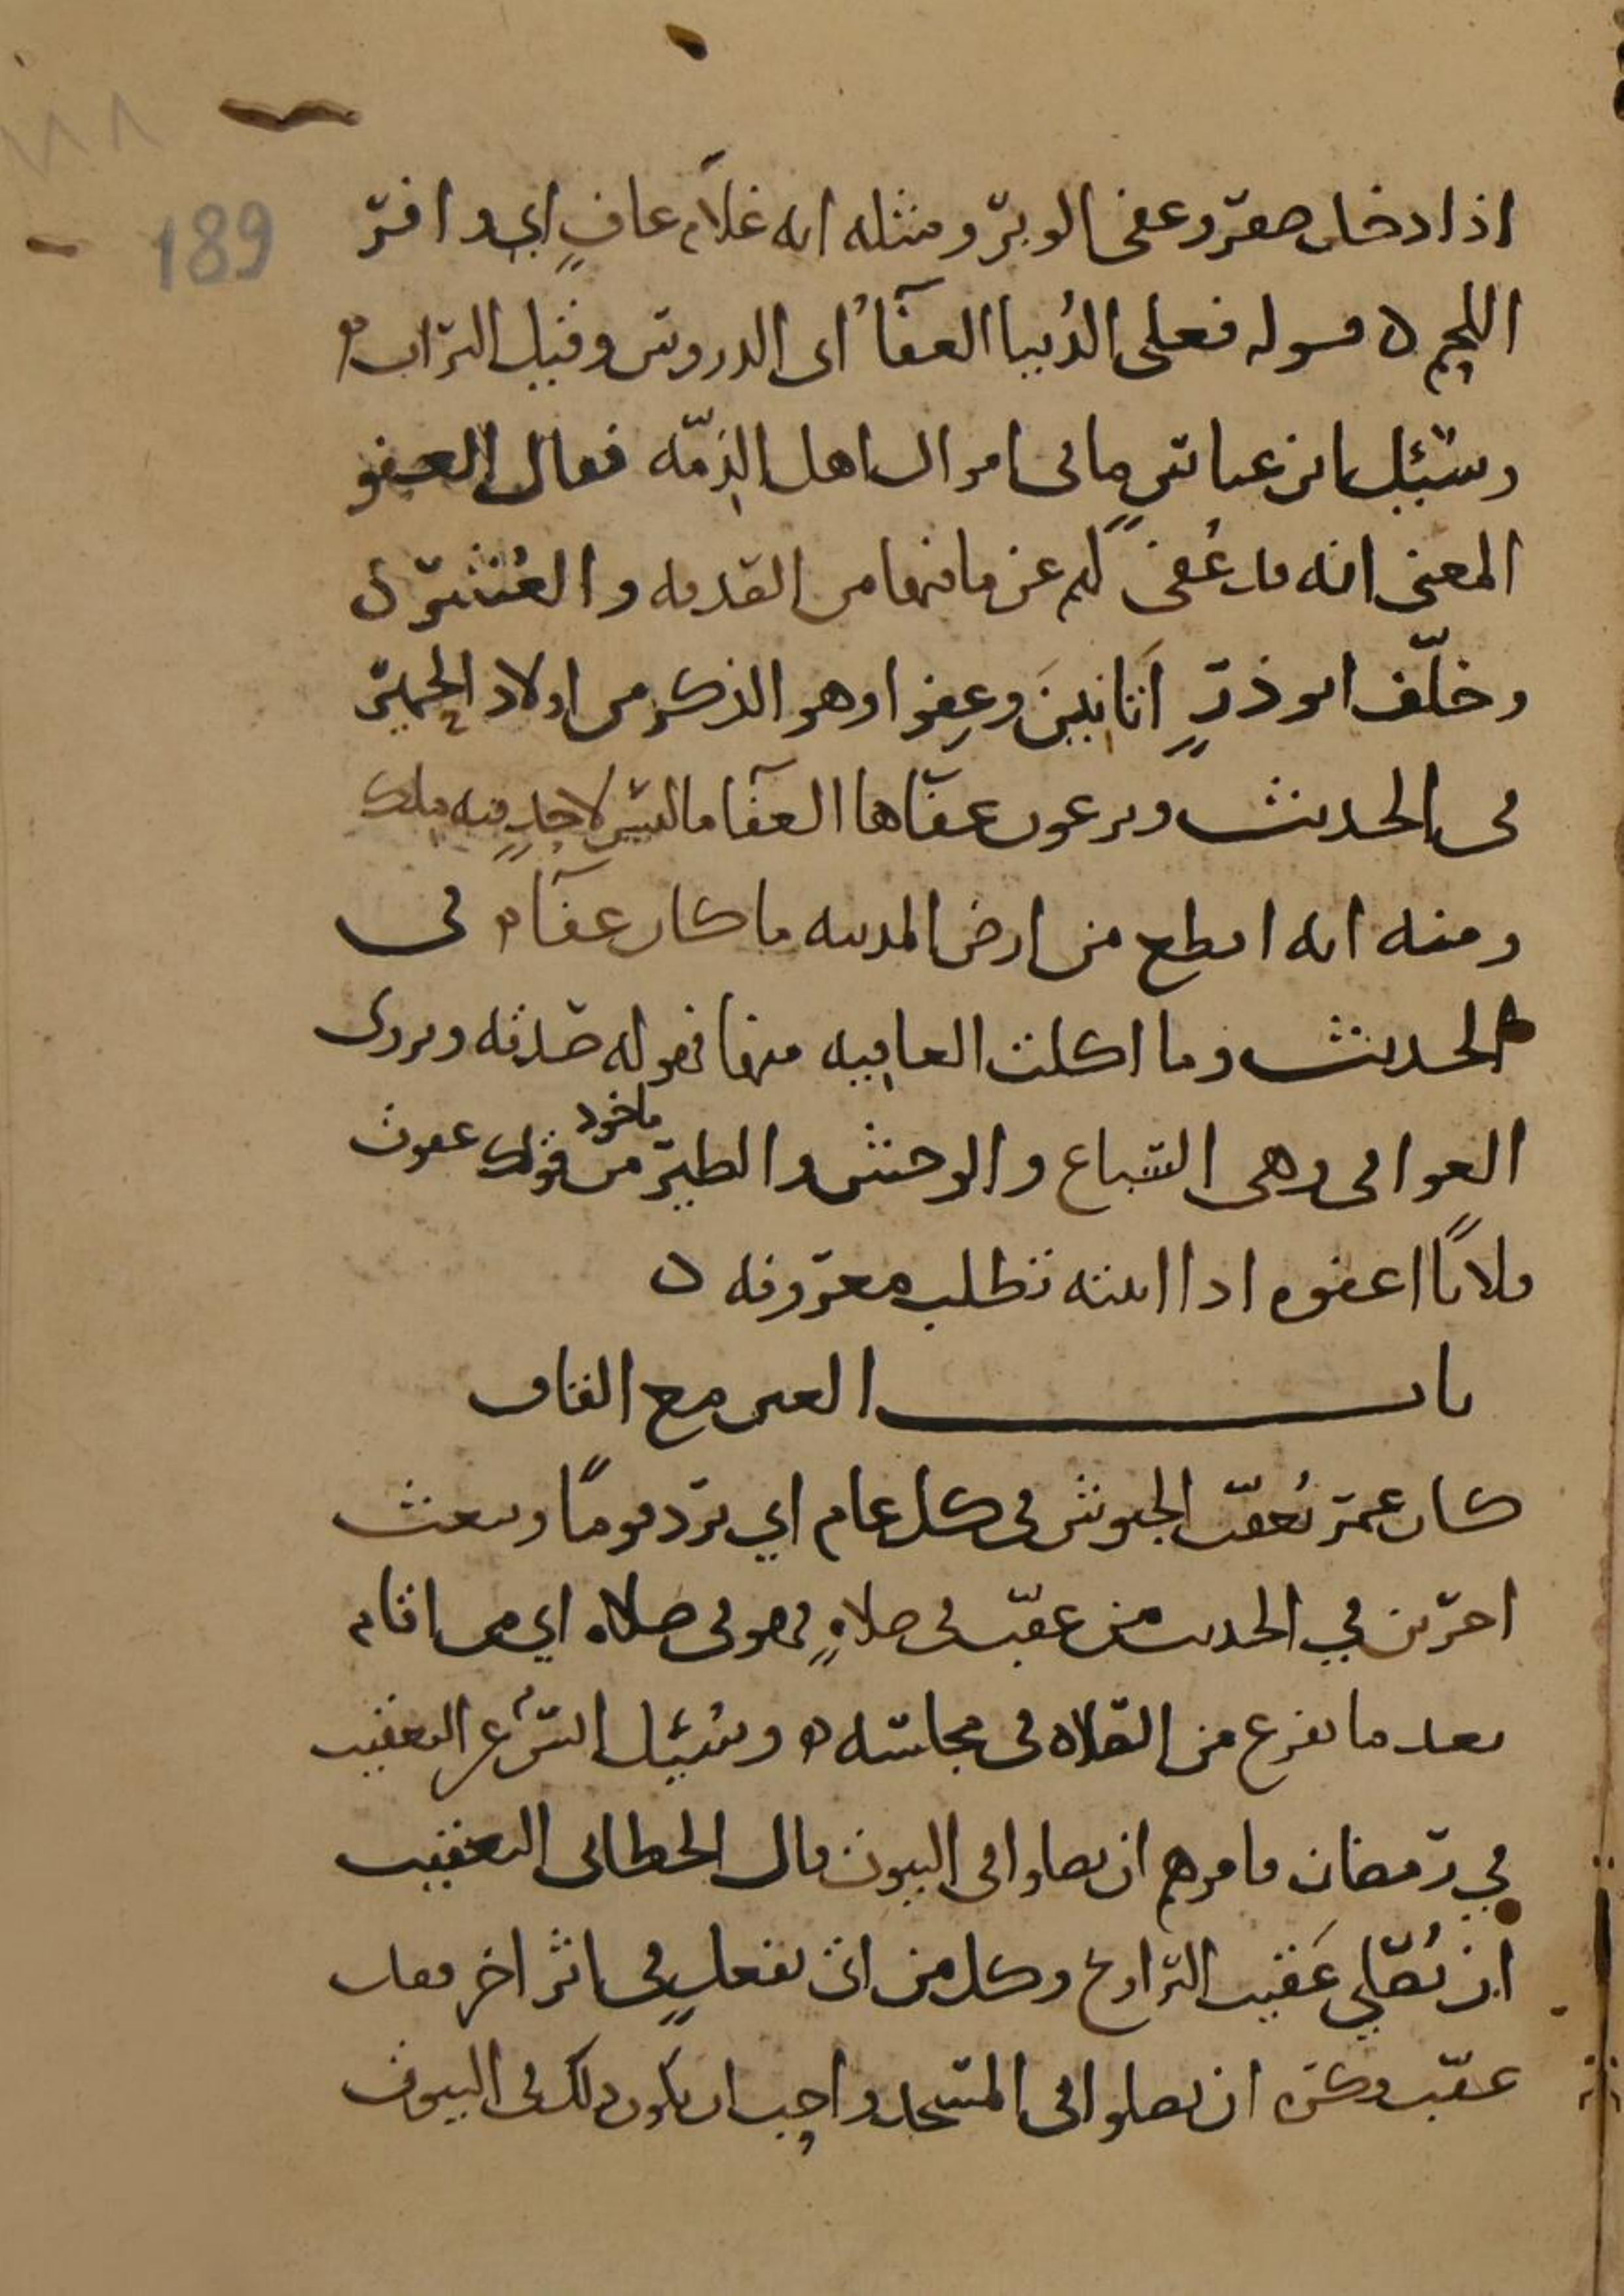 189
اذا دخل صفر وعفى الوبر ومثله انه غلام عافٍ اي وافر
اللحم ه قوله فعلى الدنيا العفآءُ اى الدروس وقيل التراب ه
وسئل ابن عباسٍ ما فى اموال اهل الذمّه فقال العفو
المعنى انه قد عُفى لهم عن ما فيها من الصدقه والعُشر ه
وخلّف ابو ذرٍ اتانينَ وعِفوا وهو الذكر من اولاد الحمير
فى الحديث ويرعون عفاها العفآ ما ليس لاحدٍ فيه ملك
ومنه انه اقطع من ارض المدينه ما كان عفآ ه فى
الحديث وما اكلت العافيه منها فهو له صدقه ويروى
العوافى وهى السباع والوحش والطير ماخوذ من قولك عفوت
فلانًا اعفوه اذا اتيته تطلب معروفه ه
باب العين مع القاف
كان عمر يُعقّب الجيوش فى كل عام اي يرد قومًا ويبعث
اخرين في الحديث من عقّب فى صلاهٍ فهو فى صلاه اي من اقام
بعد ما يفرغ من الصلاه فى مجلسه ه وسُئل انس عن التعقيب
في رمضان فامرهم ان يصلوا فى البيوت قال الخطابى التعقيب
ان يُصلّي عَقيب التراويح وكل من اتى بفعلٍ فى اثر اخر فقد
عقّب وكره ان يصلوا فى المسجد واحب ان يكون ذلك فى البيوت